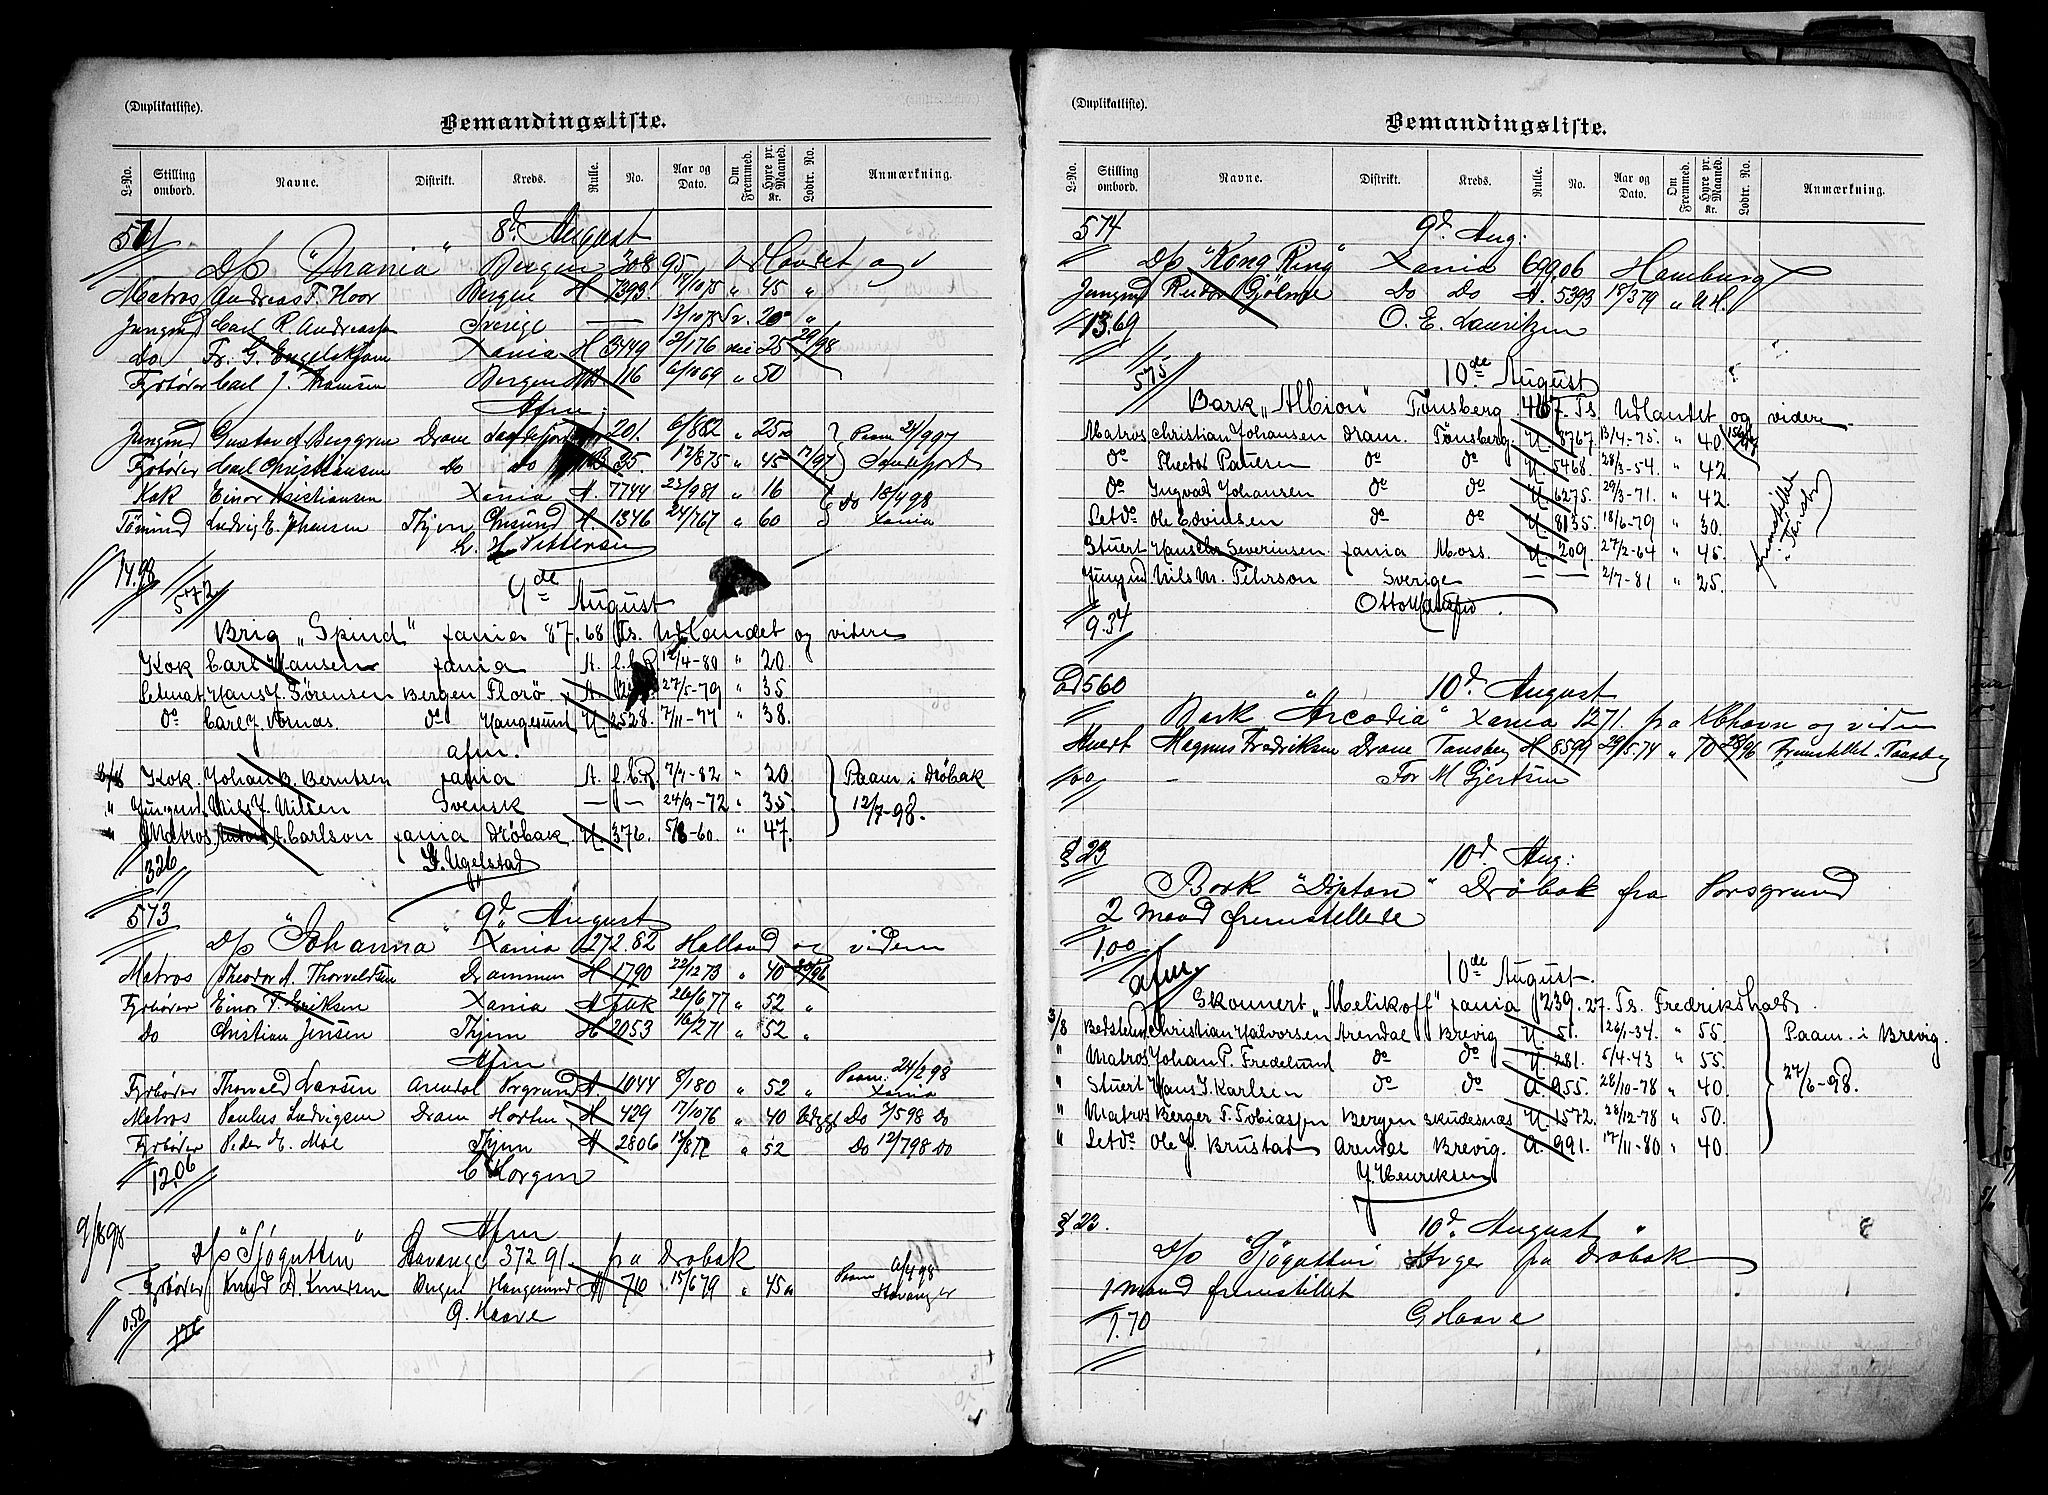 (Duplikatliste).
Bemandingsliste.
L-No. Stilling ombord. Navne. Distrikt. Kreds. Rulle. No. Aar og Dato. Om Fremmed. Hyre pr. Maaned. Kr. Lodtr. No. Anmærkning.
571 8d August
D/S "Urania" Bergen 308 95
Matros Andreas T. Hoor Bergen H 7393 45 "
Jungmd Carl R. Andreassen Sverige 20 "
Do Fr. G. Engelskjøn Xania H 3149 2/1 76 25 29/98
Fyrbøter Carl J. Bergen 116 6/10 69 " 50
Afm:
Jungmd Gustav A. Berggren Dram 201. 6/8 82 " 25 Paam 21/9 97
Fyrbøter Carl Christiansen Do Do 35. 12/8 75 " 45 17/97 Sandefjord
Kok Einar Kristiansen Xania A. 7744 23/9 81 " 16 Do 18/4 98
Tømmd Ludvig E. Johansen Thjem H 1346 24/7 67 " 60 Xania
14.98
572 9de August
Brig "Spind" Xania 87.68 Ts. Udlandet og videre
Kok Carl Hansen Xania A. f.C.R. 12/4-80 " 20.
Letmat Hans J. Sørensen Bergen Florø A. 27/5-79 " 35
do Carl J. do Haugesund U 2528. 7/11-77 " 38.
afm.
Kok. Johan B. Berntsen Xania A. f.C.R 7/7-82 " 20. Paam i Drøbak
" Jungmd. Nils J. Nilsen Svensk — — 24/9-72 " 35. 12/7-98.
" Matros Carlson Xania Drøbak. U. 376. 5/8-60. " 47.
3.26 Ugelstad
573 9d August
D/S "Johanna" Xania 1272.82 Holland og videre
Matros Theodor A. Thorvaldsen Drammen H 1790 22/12 73 " 40
Fyrbøter Einar T. Eriksen Xania A 26/6 77 " 52 "
Do Christian Jensen Thjem H 2053 16/2 71 " 52 "
Afm
Fyrbøter Thorvald Larsen Arendal Prsgrund A. 1044 8/1 80 " 52 Paam. 24/2 98 Xania
Matros Paulus Ludvigsen Dram Horten H 429 17/10 76 " 40 Do 2/5 98 Do
Fyrbøter Peder E. Moe Thjem A 2806 " 52 Do 12/7 98 Do
12.06 C Korgen
9/8 98 Afm
D/S "Sjøgutten" Stavanger 372 91. fra Drøbak
Fyrbøter Knud A. Knudsen Bergen Haugesund A 710 15/6 79 " 45 Paam 6/4 98 Stavanger
0.50 G. Haave
(Duplikatliste).
Bemandingsliste.
L-No. Stilling ombord. Navne. Distrikt. Kreds. Rulle. No. Aar og Dato. Om Fremmed. Hyre pr. Maaned. Kr. Lodtr. No. Anmærkning.
574 9d Aug:
D/S "Kong Ring" Xania 699 06 Hamburg
Jungmd Do Do A. 5393 18/3 79 "
13.69 O. E. Lauritzen
575 10de August
Bark "Albion" Tønsberg 467. Ts. Udlandet og videre
Matros Christian Johansen Dram. Tønsberg. U. 8767. 13/4-75. " 40.
do Theodor Paulsen do do U. 5468. 28/3-54. " 42.
do Ingvad Johansen do do U. 6275. 29/3-71. " 42.
Letdo Ole Edvinsen do do U. 8135. 18/6-79 " 30.
Stuert Hans Chr Severinsen Xania Moss. U. 209. 27/2-64 " 45. fremstillet i Tønsbg
Jungmd Nils M. Pehrson Sverige — — 2/7-81 " 25.
9.34
Ad 560 10d August
Bark "Arcadia" Xania 1271. fra Kbhavn og videre
Stuert Magnus Fredriksen Dram Tønsberg H 8599 29/5 74 " 70 28/96 Fremstillet i Tønsbg
1.00 For M Gjertsen
§ 23 10d Aug:
Bark Drøbak fra Porsgrund
2 mand fremstillede
1.00
afm. 10de August
Skonnert "Melikoff" Xania 239.27. Ts. Fredrikshald.
3/8 Bedstemd Christian Halvorsen Arendal Brevig U. 51. 26/1-34. " 55 Paam. i Brevig.
" Matros Johan P. Fredelund do do U. 281. 5/4-43 " 55. 27/6-98.
" Stuert Hans I. Karlsen do do A. 955. 28/10-78 " 40.
" Matros Berger T. Tobiassen Bergen Skudesnæs U. 1572. 28/12-78 " 50.
" Letdo Ole J. Brustad Arendal Brevig. A. 991. 17/11-80 " 40.
J. Henriksen
§ 23. 10d August
D/S "Sjøgutten" Stvger fra Drøbak
1 mand fremstillet
1.70 G Haave